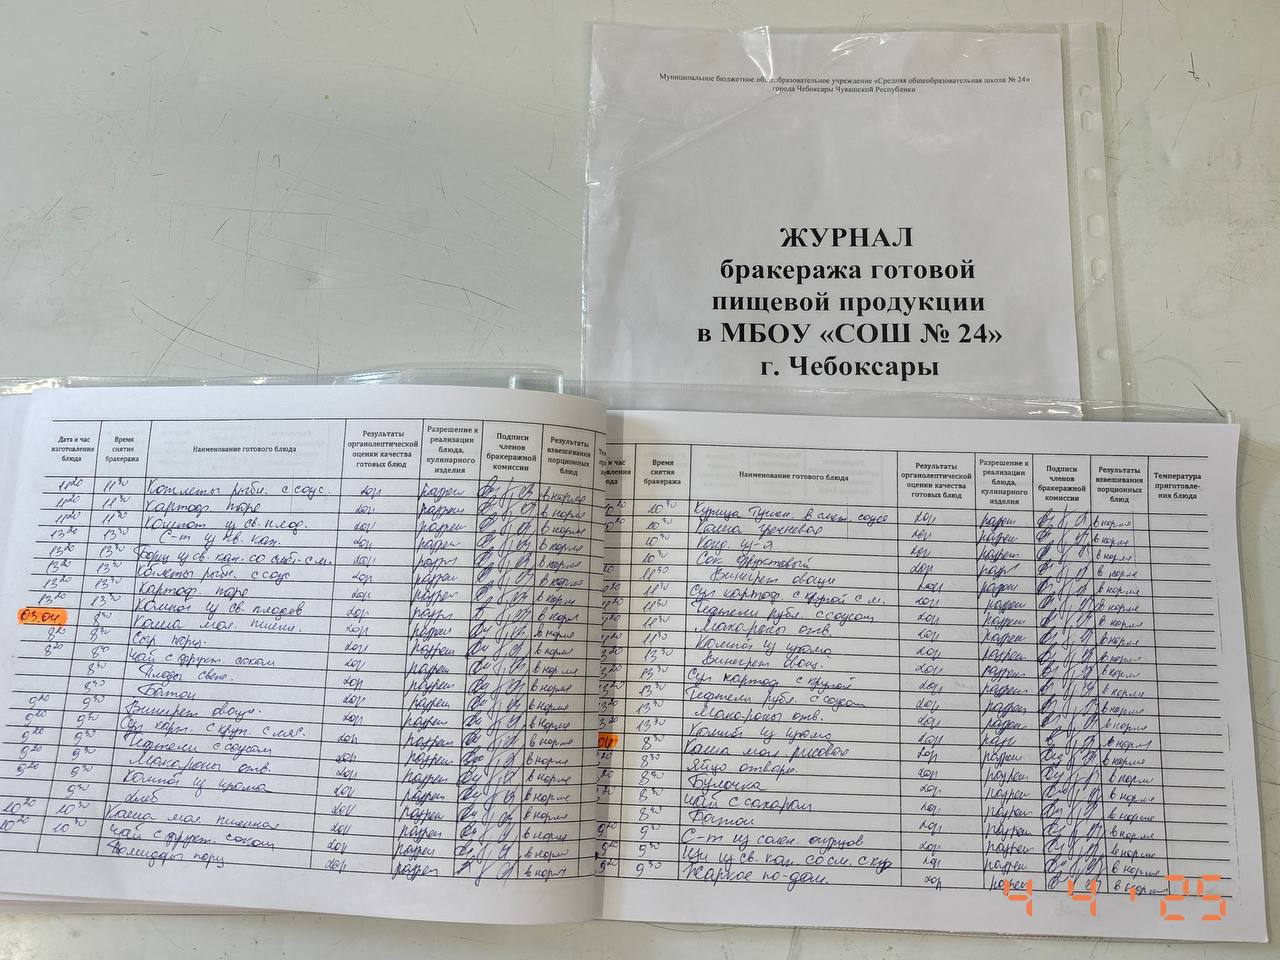 Муниципальное бюджетное общеобразовательное учреждение «Средняя общеобразовательная школа № 24»
города Чебоксары Чувашской Республики
ЖУРНАЛ
бракеража готовой
пищевой продукции
в МБОУ «СОШ № 24»
г. Чебоксары
Дата и час изготовления блюда Время снятия бракеража Наименование готового блюда Результаты органолептической оценки качества готовых блюд Разрешение к реализации блюда, кулинарного изделия Подписи членов бракеражной комиссии Результаты взвешивания порционных блюд
11 20 11 30 Котлеты рыбн. с соус. хор разреш в норме
11 20 11 30 Картоф. пюре хор разреш в норме
11 20 11 30 Компот из св. плод. хор разреш в норме
13 20 13 30 С-т из св. кап. хор разреш в норме
13 20 13 30 Борщ из св. кап. со смет. с м. хор разреш в норме
13 20 13 30 Котлеты рыбн. с соус хор разреш в норме
13 20 13 30 Картоф. пюре хор разреш в норме
13 20 13 30 Компот из св. плодов хор разреш в норме
03.04 8 30 Каша мол. пшен. хор разреш в норме
8 20 8 30 Сыр порц. хор разреш в норме
8 20 8 30 Чай с фрукт. соком хор разреш в норме
8 30 Плоды свеж. хор разреш в норме
Батон хор разреш в норме
9 20 9 30 Винегрет овощн. хор разреш в норме
9 20 9 30 Суп карт. с круп. с мяс. хор разреш в норме
9 20 9 30 Тефтели с соусом хор разреш в норме
9 20 9 30 Макароны отв. хор разреш в норме
9 20 9 30 Компот из изюма хор разреш в норме
9 30 Хлеб хор разреш в норме
10 20 10 30 Каша мол. пшенная хор разреш в норме
10 20 10 30 Чай с фрукт. соком хор разреш в норме
Помидоры порц хор разреш в норме
Время снятия бракеража Наименование готового блюда Результаты органолептической оценки качества готовых блюд Разрешение к реализации блюда, кулинарного изделия Подписи членов бракеражной комиссии Результаты взвешивания порционных блюд Температура приготовления блюд
10 30 Курица тушен. в смет. соусе хор разреш в норме
10 30 Каша гречневая хор разреш в норме
10 30 Конд. из-я хор разреш в норме
10 30 Сок фруктовый хор разреш в норме
11 30 Винегрет овощн хор разреш в норме
11 30 Суп картоф. с крупой с м. хор разреш в норме
11 30 Тефтели рубл. с соусом хор разреш в норме
11 30 Макароны отв. хор разреш в норме
11 30 Компот из изюма хор разреш в норме
13 30 Винегрет овощ. хор разреш в норме
13 30 Суп картоф. с крупой хор разреш в норме
13 30 Тефтели рубл. с соусом хор разреш в норме
Макароны отв. хор разреш в норме
13 30 Компот из изюма хор разреш в норме
04 8 30 Каша мол. рисовая хор разреш в норме
8 30 Яйцо отварн. хор разреш в норме
8 30 Булочка хор разреш в норме
8 30 Чай с сахаром хор разреш в норме
Батон хор разреш в норме
9 30 С-т из солен. огурцов хор разреш в норме
9 30 Щи из св. кап. со см. с кур хор разреш в норме
9 30 Жаркое по-дом. хор разреш в норме
4 4 '25